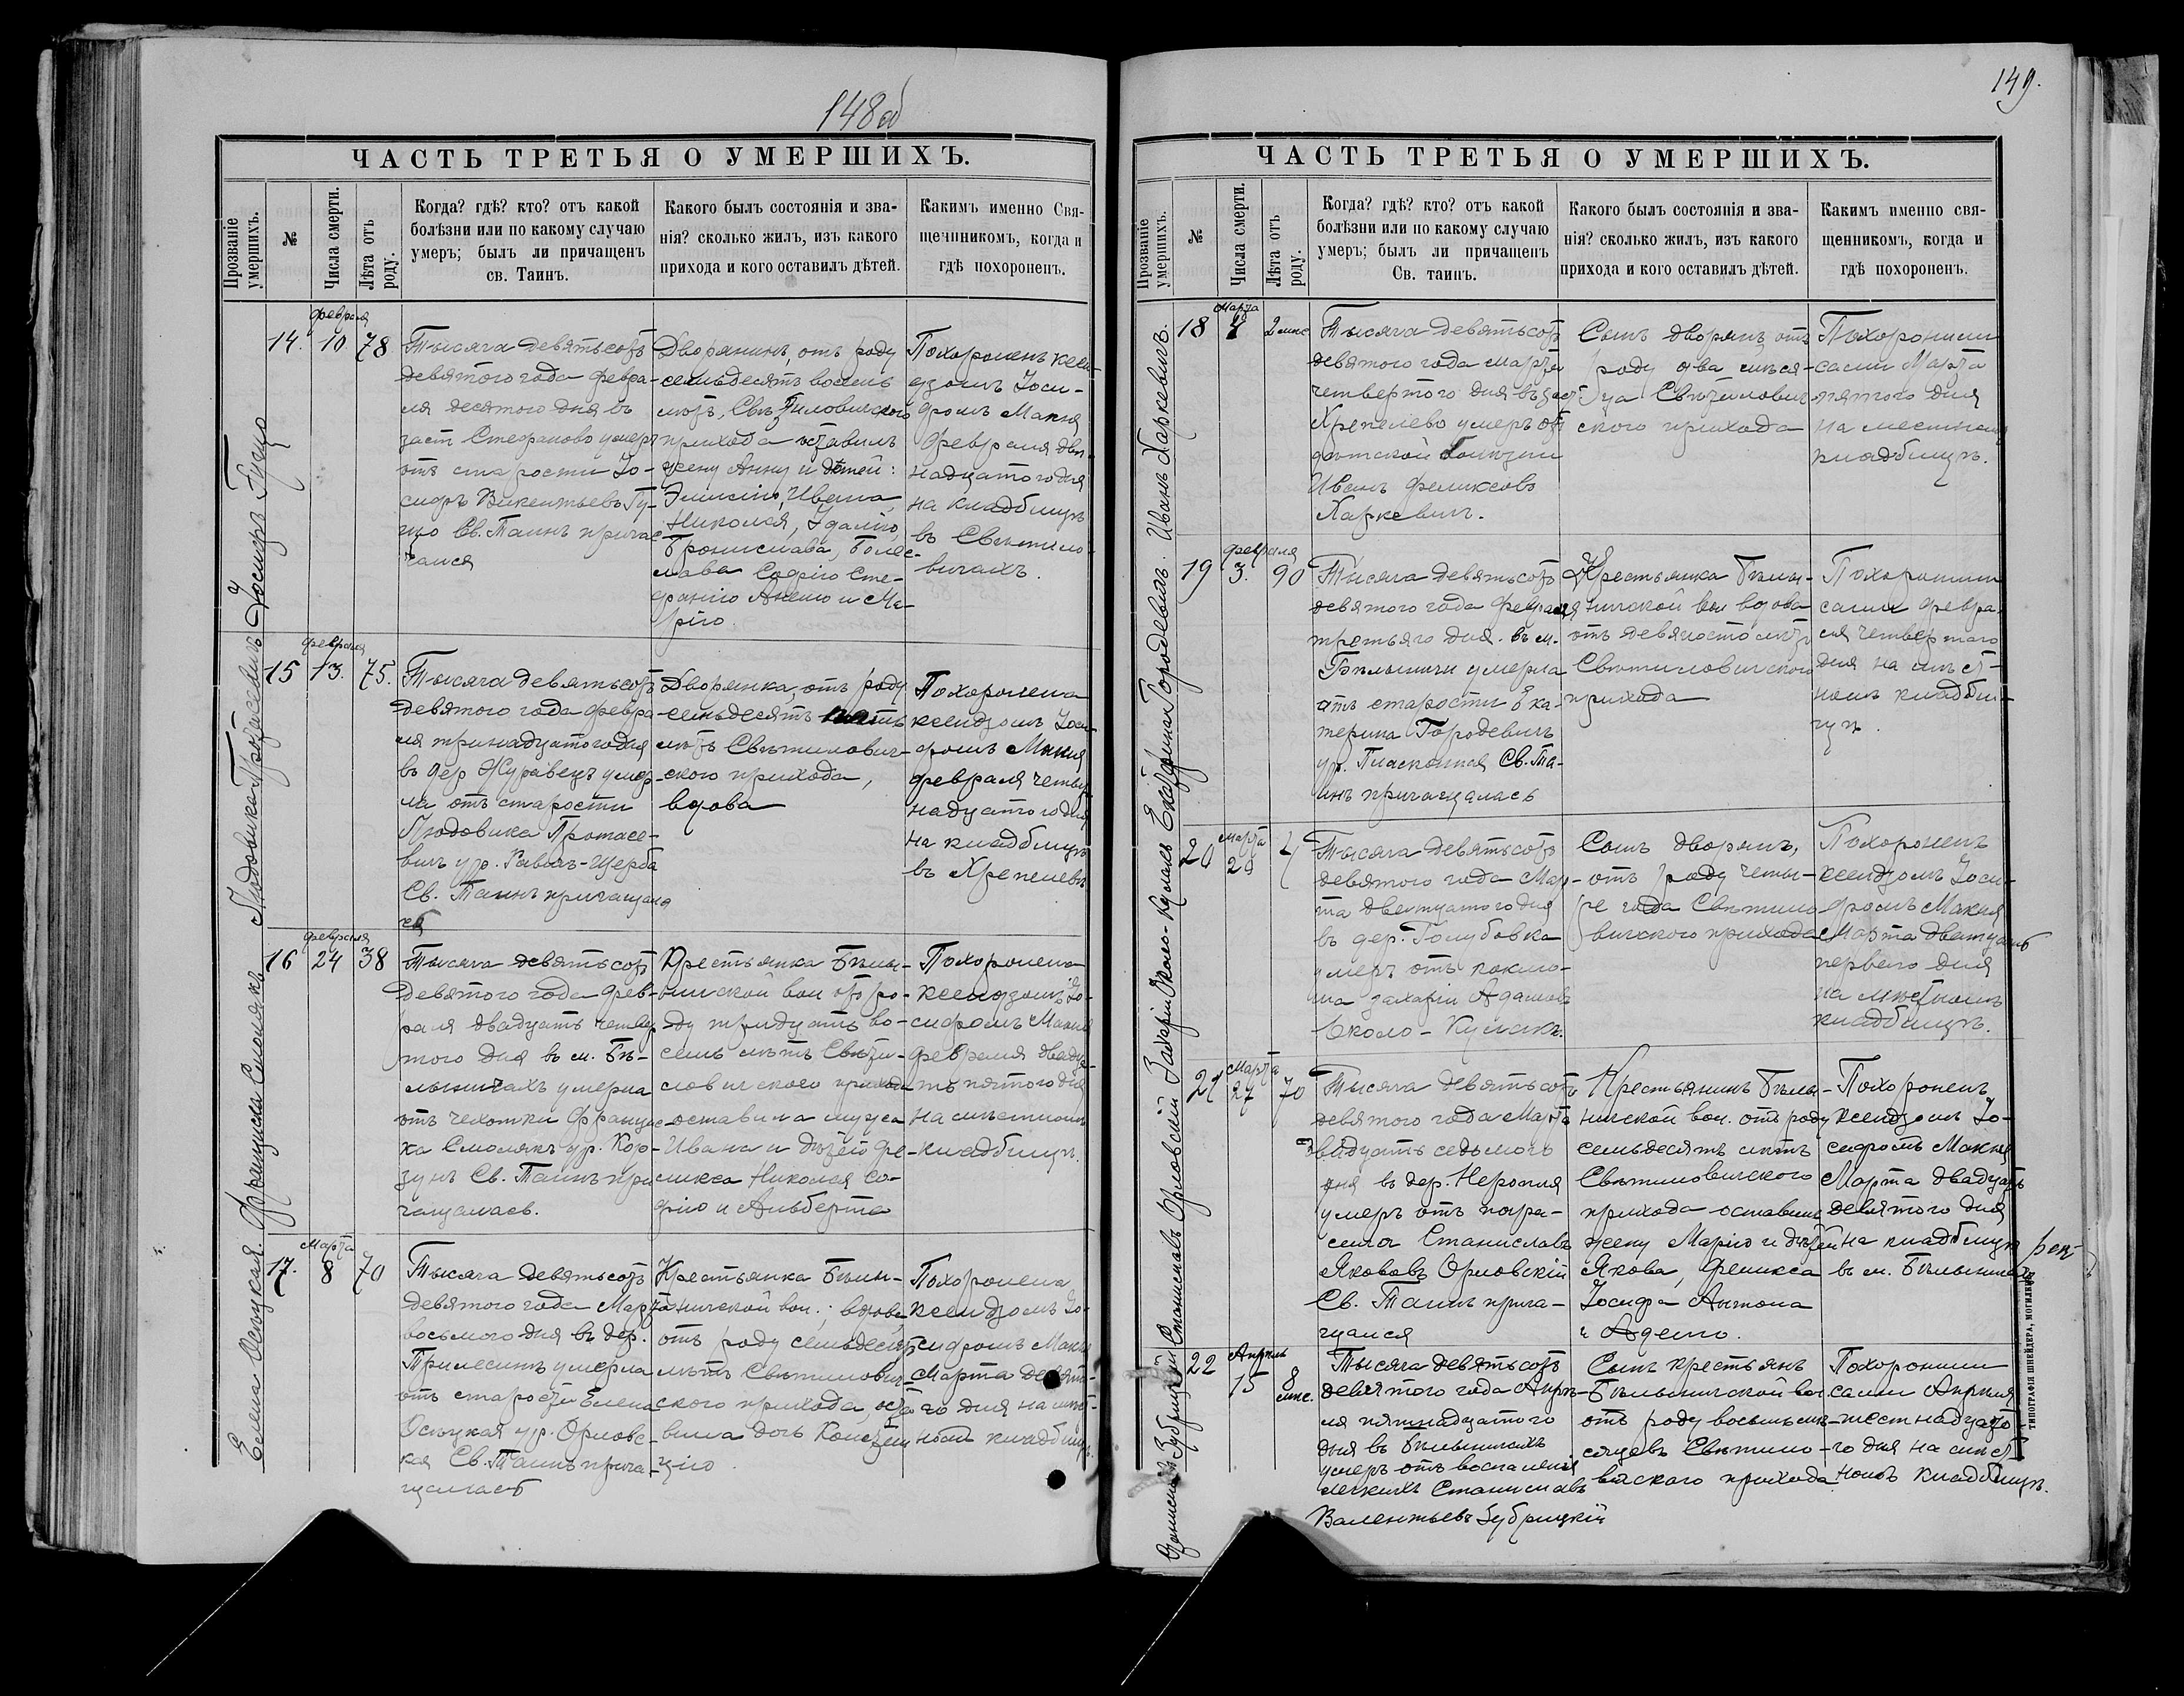 148об
ЧАСТЬ ТРЕТЬЯ О УМЕРШИХЪ.
Прозваніе умершихъ.
№
Числа смерти.
Лѣта отъ роду.
Когда? гдѣ? кто? отъ какой
болѣзни или по какому случаю
умеръ; былъ ли причащенъ
св. Таинъ.
Какого былъ состоянія и зва-
нія? сколько жилъ, изъ какого
прихода и кого оставилъ дѣтей.
Каким именно Свя-
щенникомъ, когда и
гдѣ похороненъ.
Іосифъ Гуцо
14.
февраля
10
78
Тысяча девятьсотъ
девятого года февра-
ля десятого дня въ
заст Стефаново умеръ
отъ старости Іо-
сифъ Викентьевъ Гу-
цо Св. Таинъ прича-
щался
Дворянинъ, отъ роду
семьдесятъ восемь
лѣтъ, Свѣтиловичского
прихода оставилъ
жену Анну и дѣтей:
Эмилію, Ивана,
Николая, Идалію,
Бронислава, Болес-
лава Софію Сте-
фанію Анелю и Ма-
рію.
Похороненъ ксен-
дзомъ Іоси-
фомъ Макия
февраля две-
надцатого дня
на кладбищѣ
въ Свѣтило-
вичахъ.
Людовика Протасевичъ
15
февраля
13.
75.
Тысяча девятьсотъ
девятого года февра-
ля тринадцатого дня
въ дер Журавецъ умер-
ла отъ старости
Людовика Протасе-
вичъ ур. Равичъ-Щерба
Св. Таинъ причащала
ся
Дворянка, отъ роду
семьдесятъ пять
лѣтъ Свѣтилович-
ского прихода,
вдова
Похоронена
ксендзомъ Іоси-
фомъ Макия
февраля четыр-
надцатого дня
на кладбищѣ
въ Хрепелевѣ
Франциска Смолякъ
16
февраля
24
38
Тысяча девятьсотъ
девятого года фев-
раля двадцать четвер
того дня въ м. Бѣ-
лыничахъ умерла
отъ чехотки Францис-
ка Смолякъ ур. Кор-
зунъ Св. Таинъ при
чащалась.
Крестьянка Бѣлы-
ничской вол отъ ро-
ду тридцать во-
семь лѣтъ Свѣти-
ловичского прихода
оставила мужа
Ивана и дѣтей Фе-
ликса Николая Со-
фію и Альберта
Похоронена
ксендзомъ Іо-
сифомъ Макия
февраля двадца
ть пятого дня
на мѣстномъ
кладбищѣ.
Елена Осецкая.
17.
Марта
8
70
Тысяча девятьсотъ
девятого года Марта
восьмого дня въ дер.
Прилесинѣ умерла
отъ старости Елена
Осецкая ур. Орловс-
кая Св. Таинъ прича-
щалась
Крестьянка Бѣлы-
ничской вол.; вдова
отъ роду семьдесятъ
лѣтъ Свѣтилович-
ского прихода, оста-
вила дочь Констан
цію.
Похоронена
ксендзомъ Іо-
сифомъ Макия
Марта девято-
го дня на мѣст-
номъ кладбищѣ.
149.
ЧАСТЬ ТРЕТЬЯ О УМЕРШИХЪ.
Прозваніе умершихъ.
№
Числа смерти.
Лѣта отъ роду.
Когда? гдѣ? кто? отъ какой
болѣзни или по какому случаю
умеръ; былъ ли причащенъ
Св. таинъ.
Какого былъ состоянія и зва-
нія? сколько жилъ, изъ какого
прихода и кого оставилъ дѣтей.
Какимъ именно свя-
щенникомъ, когда и
гдѣ похороненъ.
Иванъ Харкевичъ.
18
Марта
4
2 мѣс
Тысяча девятьсотъ
девятого года марта
четвертого дня въ заст
Хрепелево умеръ отъ
дѣтской болѣзни
Иванъ Феликсовъ
Харкевичъ.
Сынъ дворянъ отъ
роду два мѣся-
ца Свѣтилович-
ского прихода
Похоронили
сами Марта
пятого дня
на местномъ
кладбищѣ.
Екатерина Городевичъ
19
февраля
3.
90
Тысяча девятьсотъ
девятого года февраля
третьяго дня. въ м.
Бѣлыничи умерла
отъ старости Ека-
терина Городевичъ
ур. Пласконная Св. Та-
инъ причащалась
Крестьянка Бѣлы-
ничской вол вдова
отъ девяносто лѣтъ
Свѣтиловичского
прихода
Похоронили
сами февра-
ля четвертого
дня на мѣст-
номъ кладби-
щѣ.
Захарій Около-Кулакъ
20
Марта
20
4
Тысяча девятьсотъ
девятого года Мар-
та двадцатого дня
въ дер. Голубовка
умеръ отъ коклю-
ша Захарій Адамовъ
Около-Кулакъ.
Сынъ дворянъ,
отъ роду четы-
ре года Свѣтило-
вичского прихода
Похороненъ
ксендзомъ Іоси-
фомъ Макия
Марта двадцать
первого дня
на мѣстномъ
кладбищѣ.
Станиславъ Орловскій
21
Марта
27
70
Тысяча девятьсотъ
девятого года Марта
двадцать седьмого
дня въ дер. Неропля
умеръ отъ пара-
лича Станиславъ
Якововъ Орловскій
Св. Таинъ прича-
щался
Крестьянинъ Бѣлы-
ничской вол. отъ роду
семьдесятъ лѣтъ
Свѣтиловичского
прихода оставилъ
жену Марію и дѣтей
Якова, Феликса
Іосифа Антона
и Аделю.
Похороненъ
ксендзомъ Іо-
сифомъ Макия
Марта двадцать
девятого дня
на кладбищѣ
въ м. Бѣлыничахъ
Станиславъ Зубрицкій
22
Апрѣль
15
8 мѣс.
Тысяча девятьсотъ
девятого года Апрѣ-
ля пятнадцатого
дня въ Бѣлыничахъ
умеръ отъ воспаленія
легкихъ Станиславъ
Валентьевъ Зубрицкій
Сынъ крестьянъ
Бѣлыничской вол
отъ роду восемь мѣ-
сяцевъ Свѣтило-
вичского прихода
Похоронили
сами Апрѣля
шестнадцато
го дня на мѣст
номъ кладбищѣ.
ТИПОГРАФІЯ ШНЕЙДЕРА, МОГИЛЕВЪ